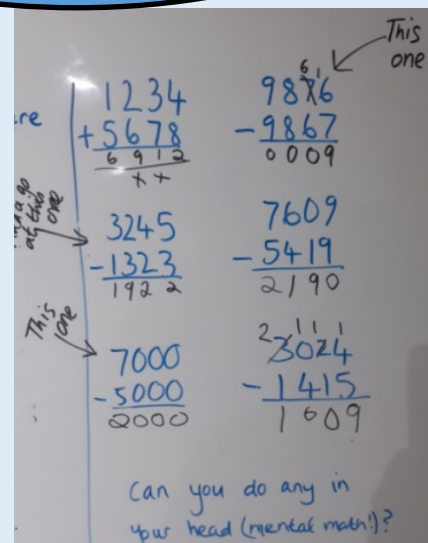 This
one
1234
+5678
6912
re
6 1
9876
-9867
0009
at this
one
3245
-1323
1922
7609
-5419
2190
This
one
7000
-5000
2000
2 1 1 1
3024
-1415
1609
Can you do any in
your head (mental math!)?